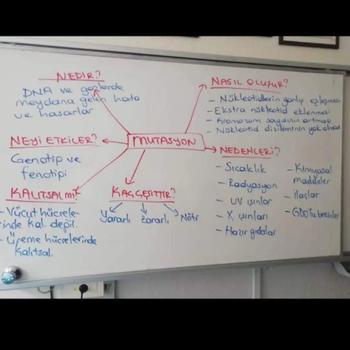 NEDİR?
DNA ve genlerde
meydana gelen hata
ve hasarlar
NASIL OLUŞUR?
- Nükleotidlerin yanlış eşleşmesi
- Ekstra nükleotid eklenmesi
- Kromozom sayısının artması
- Nükleotid diziliminin yok olması
MUTASYON
NEYİ ETKİLER?
Genotip ve
fenotipi
NEDENLERİ?
- Sıcaklık
- Radyasyon
- UV ışınları
- X ışınları
- Hazır gıdalar
- Kimyasal
maddeler
- İlaçlar
KALITSAL MI?
- Vücut hücrele-
rinde kal. değil.
- Üreme hücrelerinde
kalıtsal
KAÇ ÇEŞİTTİR?
Yararlı
Zararlı
Nötr